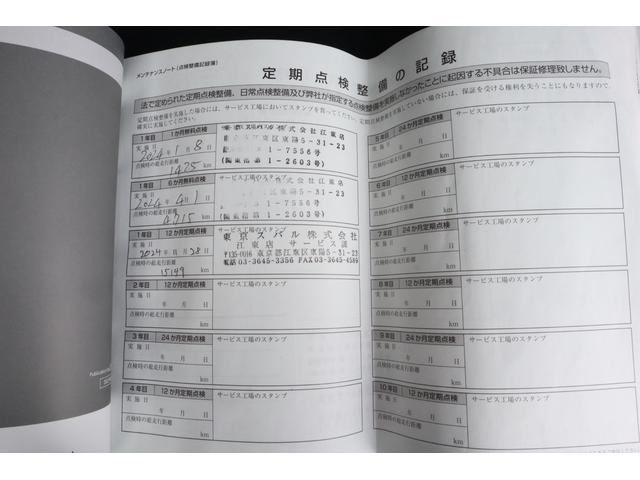 メンテナンスノート(点検整備記録簿)
定期点検整備の記録
法で定められた定期点検整備、日常点検整備及び弊社が指定する点検整備を実施しなかったことに起因する不具合は保証修理致しません。
定期点検整備を実施した場合には、サービス工場においてスタンプを貰ってください。定期点検整備を実施していない場合には、保証を受ける権利を失うことにもなりますので、
確実に実施してください。
1年目 1か月無料点検
実施日
2024年1月8日
点検時の総走行距離
1425 km
株式会社江東店
東京都江東区東陽5-31-23
1-7556号
1-2603号)
1年目 6か月無料点検
サービス工場のスタンプ
実施日
2024年4月1日
点検時の総走行距離
4715 km
株式会社江東店
江東区東陽5-31-23
1-7556号
1-2603号)
1年目 12か月定期点検
実施日
2024年11月28日
点検時の総走行距離
15149 km
東京スバル株式会社
江東店 サービス課
〒135-0016 東京都江東区東陽5-31-23
電話03-3645-3356 FAX03-3645-4589
2年目 12か月定期点検
サービス工場のスタンプ
実施日
年 月 日
点検時の総走行距離
km
3年目 24か月定期点検
サービス工場のスタンプ
実施日
年 月 日
点検時の総走行距離
km
4年目 12か月定期点検
サービス工場のスタンプ
実施日
年 月 日
点検時の総走行距離
km
5年目 24か月定期点検
サービス工場のスタンプ
実施日
年 月 日
点検時の総走行距離
km
6年目 12か月定期点検
サービス工場のスタンプ
実施日
年 月 日
点検時の総走行距離
km
7年目 24か月定期点検
サービス工場のスタンプ
実施日
年 月 日
点検時の総走行距離
km
8年目 12か月定期点検
サービス工場のスタンプ
実施日
年 月 日
点検時の総走行距離
km
9年目 24か月定期点検
サービス工場のスタンプ
実施日
年 月 日
点検時の総走行距離
km
10年目 12か月定期点検
サービス工場のスタンプ
実施日
年 月 日
点検時の総走行距離
km